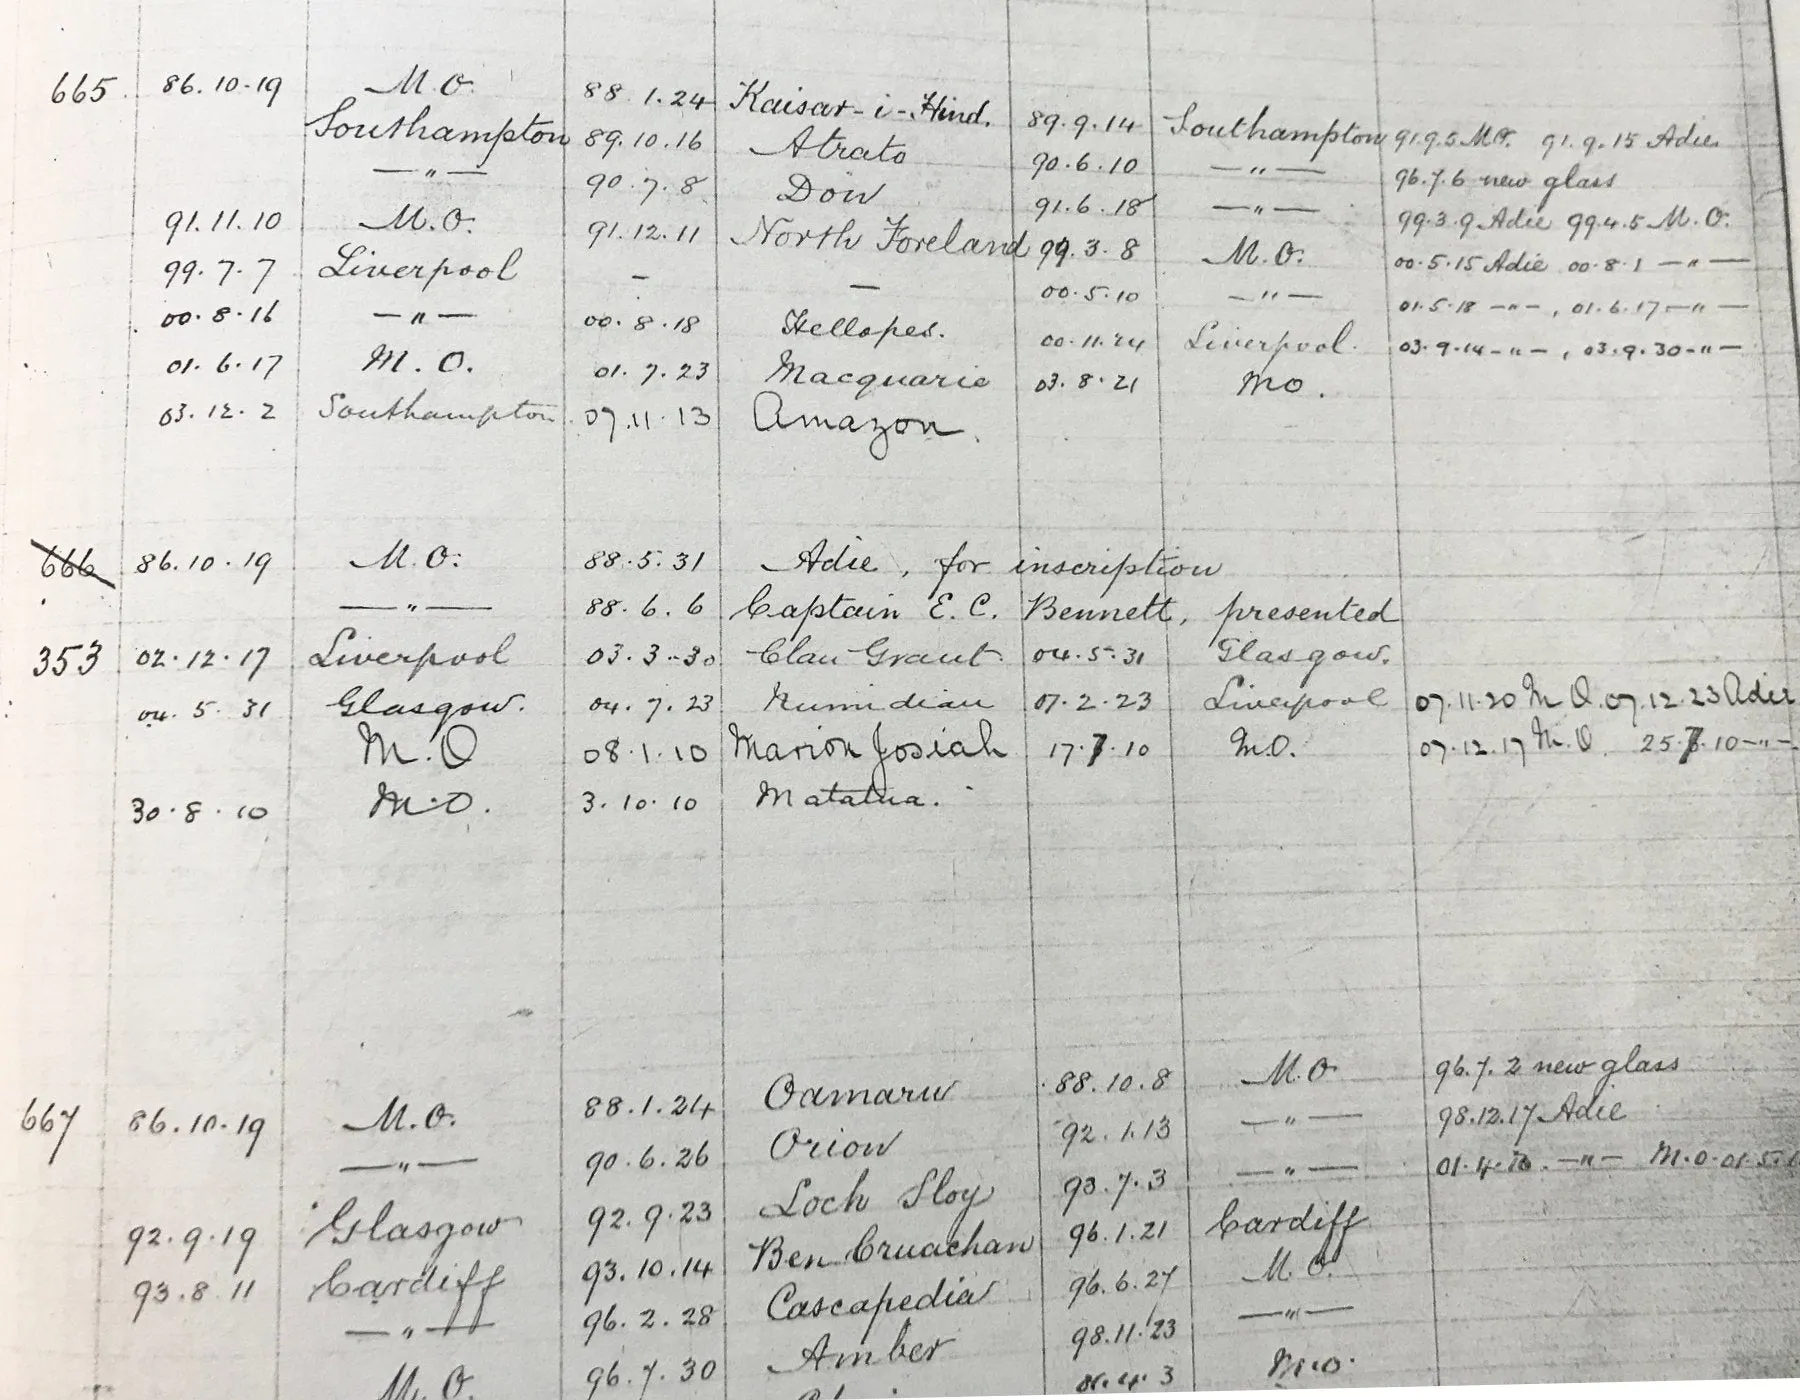 665 86.10.19 M.O. 88.1.24 Kaisar-i-Hind. 89.9.14 Southampton 91.9.5 M.O. 91.9.15 Adie
Southampton 89.10.16 Atrato 90.6.10 —"— 96.7.6 new glass
—"— 90.7.8 Don 91.6.18 —"— 99.3.9 Adie 99.4.5 M.O.
91.11.10 M.O. 91.12.11 North Foreland 99.3.8 M.O. 00.5.15 Adie 00.8.1 —"—
99.7.7 Liverpool — — 00.5.10 —"— 01.5.18 —"—, 01.6.17 —"—
00.8.16 —"— 00.8.18 Hellopes. 00.11.24 Liverpool. 03.9.14 —"—, 03.9.30 —"—
01.6.17 M.O. 01.7.23 Macquarie 03.8.21 MO.
03.12.2 Southampton 07.11.13 Amazon.
666 86.10.19 M.O. 88.5.31 Adie, for inscription
—"— 88.6.6 Captain E.C. Bennett, presented
353 02.12.17 Liverpool 03.3.30 Clan Grant 04.5.31 Glasgow.
04.5.31 Glasgow. 04.7.23 Numidian 07.2.23 Liverpool 07.11.20 M.O. 07.12.23 Adie
M.O 08.1.10 Marion Josiah 17.7.10 M.O. 07.12.17 M.O. 25.7.10 —"—
30.8.10 M.O. 3.10.10 Matatua.
667 86.10.19 M.O. 88.1.24 Oamaru 88.10.8 M.O 96.7.2 new glass
—"— 90.6.26 Orion 92.1.13 —"— 98.12.17 Adie
92.9.19 Glasgow 92.9.23 Loch Sloy 93.7.3 —"— 01.4. —"— M.O. 01.5.
93.8.11 Cardiff 93.10.14 Ben Cruachan 96.1.21 Cardiff
—"— 96.2.28 Cascapedia 96.6.27 M.O.
M.O. 96.7.30 Amber 98.11.23 —"—
4.3 M.O.